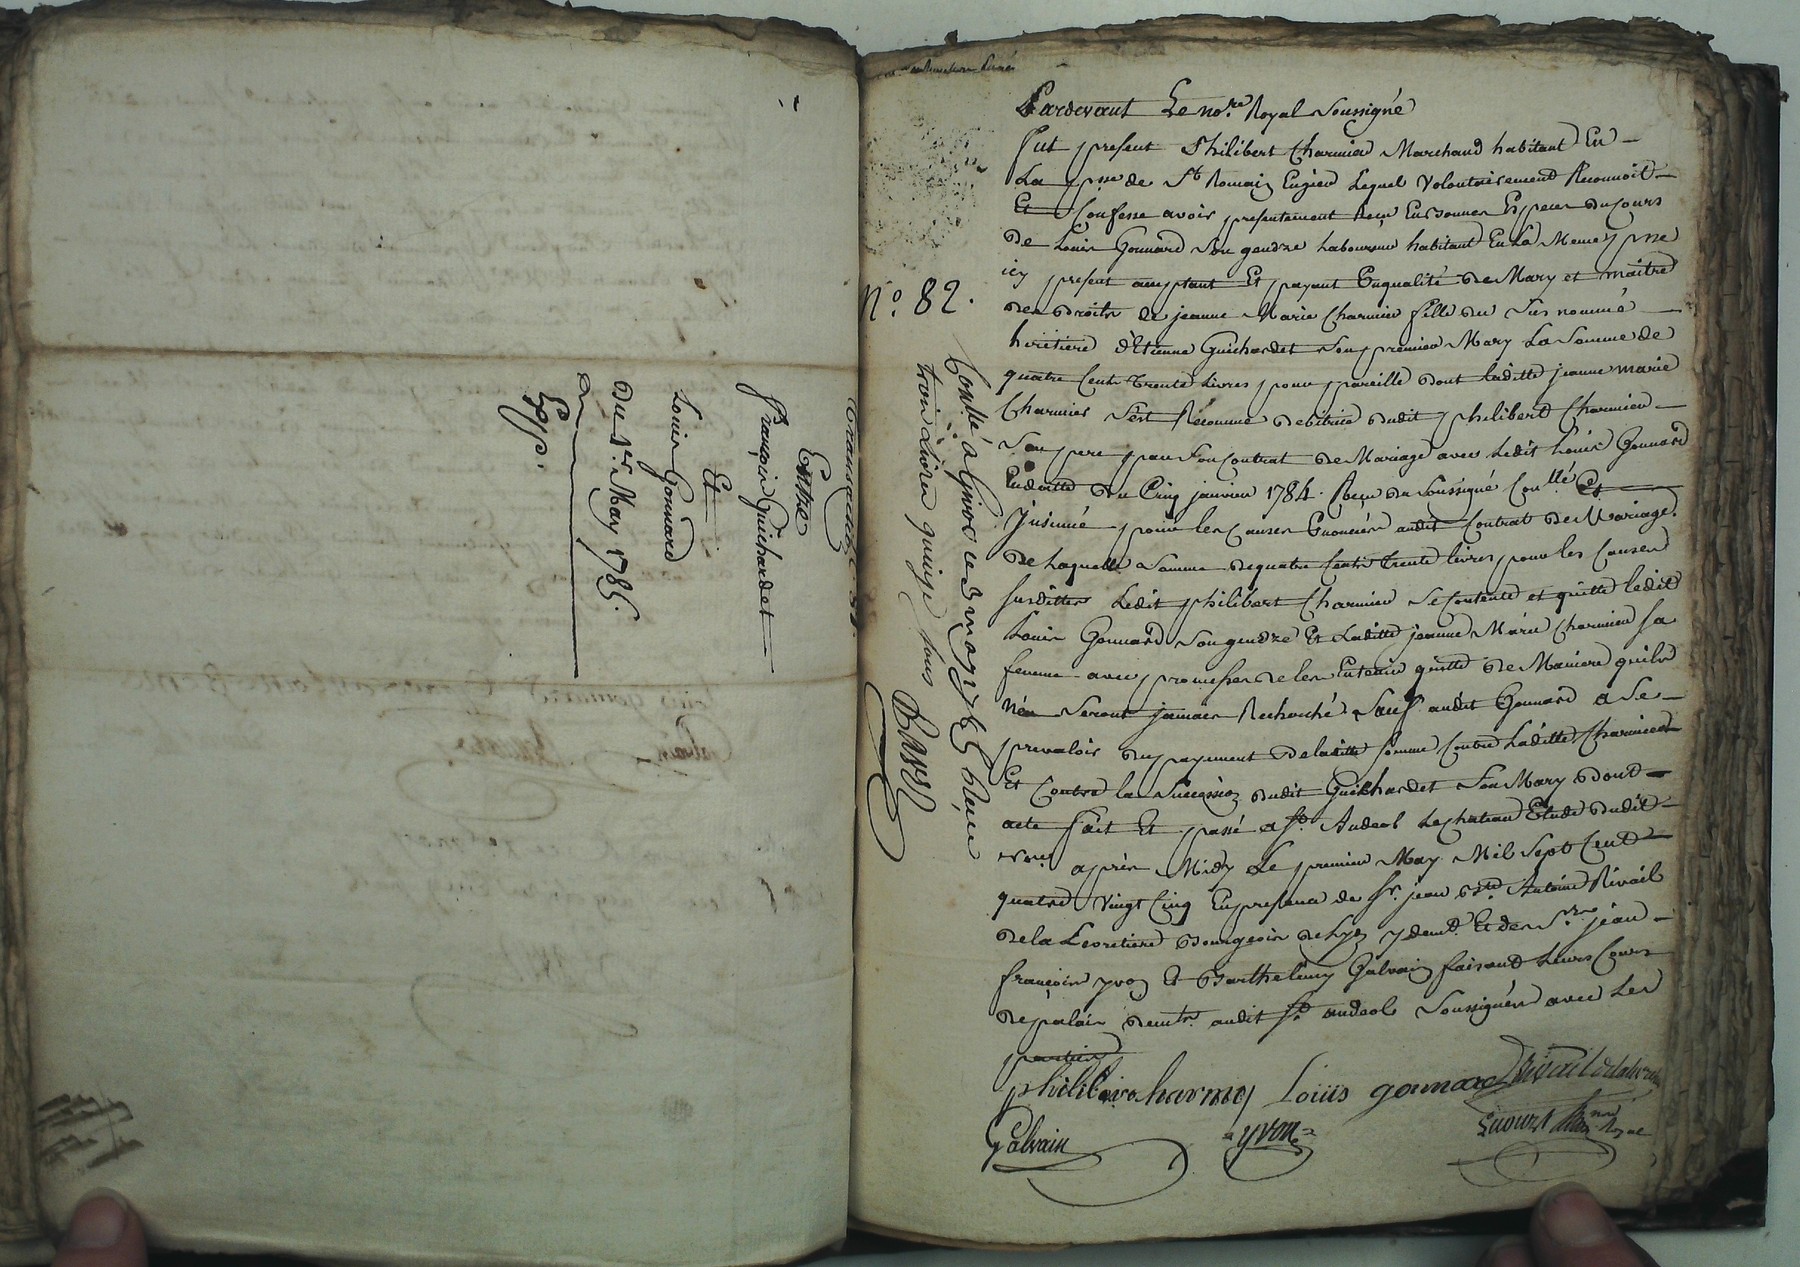 Transaction
Entre
François Guichardet
Et
Louis Gonnard
Du 1er May 1785.
Exp.
N.° 82.
Conllé a Givors ce 3 may 1785 Reçu
trois Livres quinze sous
Pardevant Le nore Royal Soussigné
Fut present Philibert Charmier Marchand habitant En
La psse de St Romain Engier Lequel Volontairement Reconnoit
Et Confesse avoir presentement Reçu En bonnes Especes du Cours
de Louis Gonnard Son gendre laboureur habitant En La Meme psse
icy present acceptant Et payant En qualité de Mary et maitre
des droits de jeanne Marie Charmier fille du Sus nommé
heritiere d'Etienne Guichardet Son premier Mary La Somme de
quatre Cents trente Livres pour pareille dont laditte jeanne marie
Charmier S'est Reconnue debitrice dudit philibert Charmier
Son pere par Son Contrat de Mariage avec Ledit Louis Gonnard
En datte du Cinq janvier 1784. Reçu du Soussigné Conllé Et
Jnsinué pour les Causes Enoncées audit Contrat de Mariage.
de Laquelle Somme de quatre Cents trente livres pour les Causes
Susdittes Ledit philibert Charmier Se Contente et quitte ledit
Louis Gonnard Son gendre Et Laditte jeanne Marie Charmier Sa
femme avec promesses de les En tenir quitte de Maniere quils
N'en Seront jamais Recherché Sauf audit Gonnard a Se
prevaloir du payement de laditte Somme Contre Laditte Charmier
Et Contre la Succession dudit Guichardet Son Mary Dont
acte fait Et passé a St. Andeol Le chateau Etude dudit
nore après Midy Le premier May Mil Sept Cent
quatre Vingt Cinq En presence de Sr. jean Bte Antoine Rivail
de la Levretiere Bourgeois de Lyon y demt. Et de Sr. jean
françois yvon Et Barthelemy Galvain faisant Leurs Cours
de palais demts. audit St. andeol Soussignés avec Les
parties
philiber charmey Louis gonnard Rivail
Galvain yvon